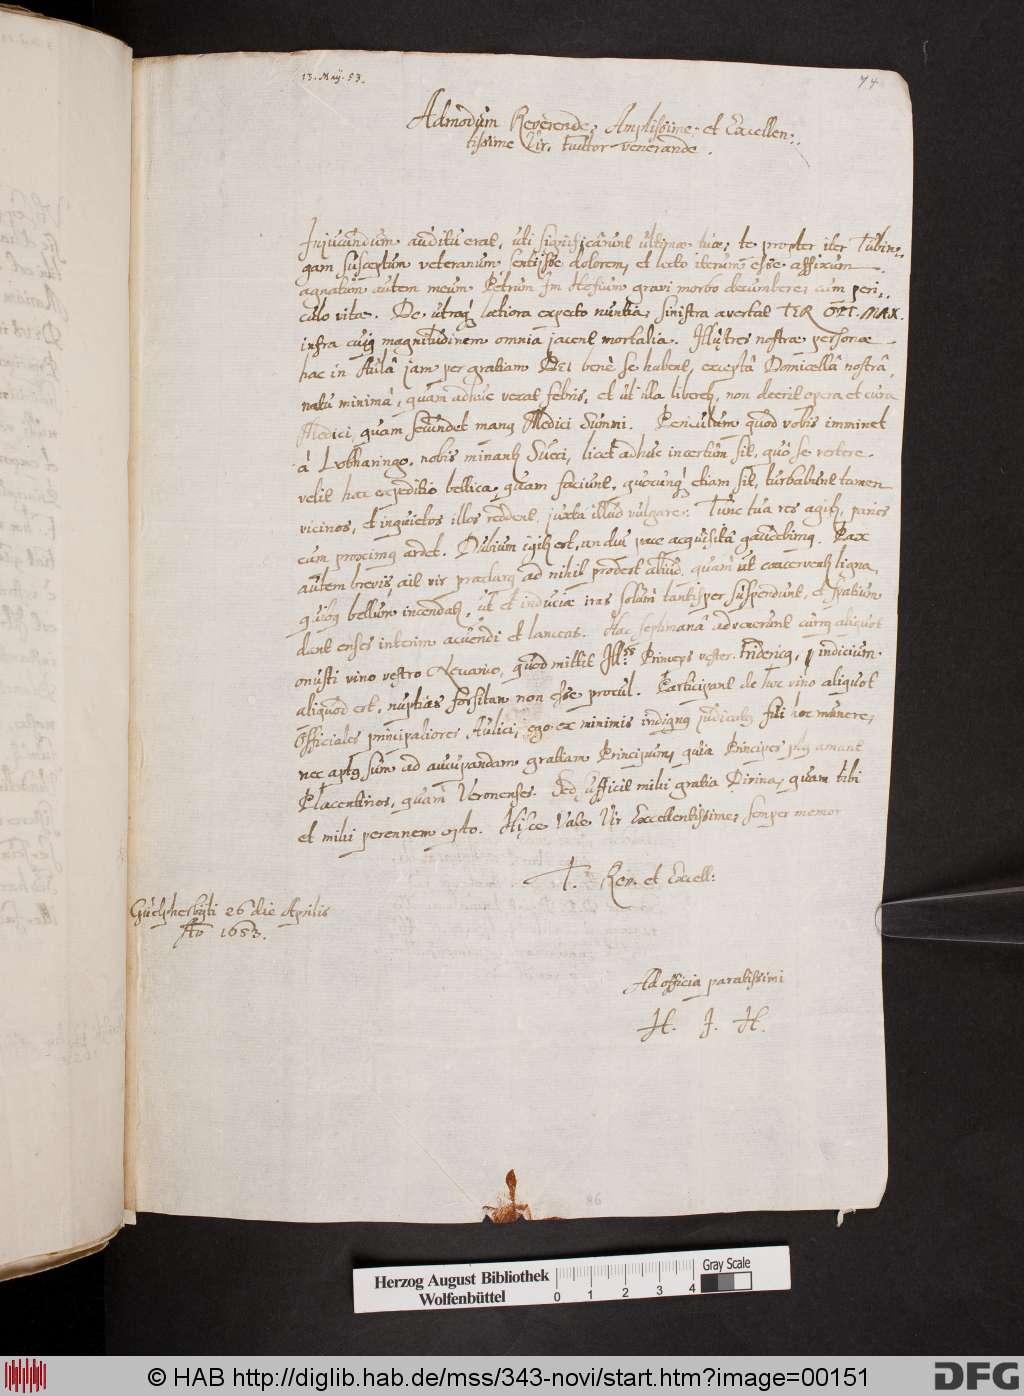 13. Maij. 53.
74
Admodum Reverende, Amplissime et Excellen-
tissime Vir, Fautor venerande.
Injucundum auditu erat, uti significârunt ultimae tuae, te propter iter Tubin-
gam susceptum veteranum sentijsse dolorem, et lecto iterum esse affixum
agnatum autem meum Petrum Im Hofium gravi morbo decumbere, cum peri-
culo vitae. De utraq laetiora expecto nuntia, sinistra avertat TER OPT. MAX.
infra cuius magnitudinem omnia jacent mortalia. Illustres nostrae personae
hac in Aulâ jam per gratiam DEI benè se habent, exceptâ Domicellâ nostrâ
natu minimâ, quam adhuc vexat febris, et ut illa liberetur, non deerit opera et cura
Medici, quam secundet manus Medici Summi. Periculum quod vobis imminet
à Lotharingo, nobis minantur Sueci, licet adhuc incertum sit, quò se vertere
velit haec expeditio bellica, quam faciunt, quocunq etiam sit, turbabunt tamen
vicinos, et inquietos illos reddent, juxta illud vulgare: Tunc tua res agitur, paries
cum proximus ardet. Dubium igitur est, an diu pace acquisitâ gaudebimus. Pax
autem brevis, ait vir praeclarus ad nihil prodest aliud, quam ut coacerventur ligna,
quibus bellum incendatur, ut et induciae iras solùm tantisper suspendunt, et spatium
dant enses interim acuendi et lanceas. Hac septimanâ advenerunt currus aliquot
onusti vino vestro Necario, quod mittit Ill.ss Princeps vester Fridericus, indicium
aliquod est, nuptias forsitan non esse procul. Participant de hoc vino aliquot
Officiales principaliores Aulici, ego ex minimis indignus judicatus fui hoc munere,
nec aptus sum ad aucupandam gratiam Principum, quia Principes plus amant
Placentinos, quàm Veronenses. Sed sufficit mihi gratia Divina, quam tibi
et mihi perennem opto. Hisce Vale Vir Excellentissime, semper memor
T. Rev. et Excell:
Guelpherbyti 26 die Aprilis
Ao 1653.
Ad officia paratissimi
H. J. H.
86
Herzog August Bibliothek
Wolfenbüttel
0 1 2 3 4
Gray Scale
© HAB http://diglib.hab.de/mss/343-novi/start.htm?image=00151
DFG